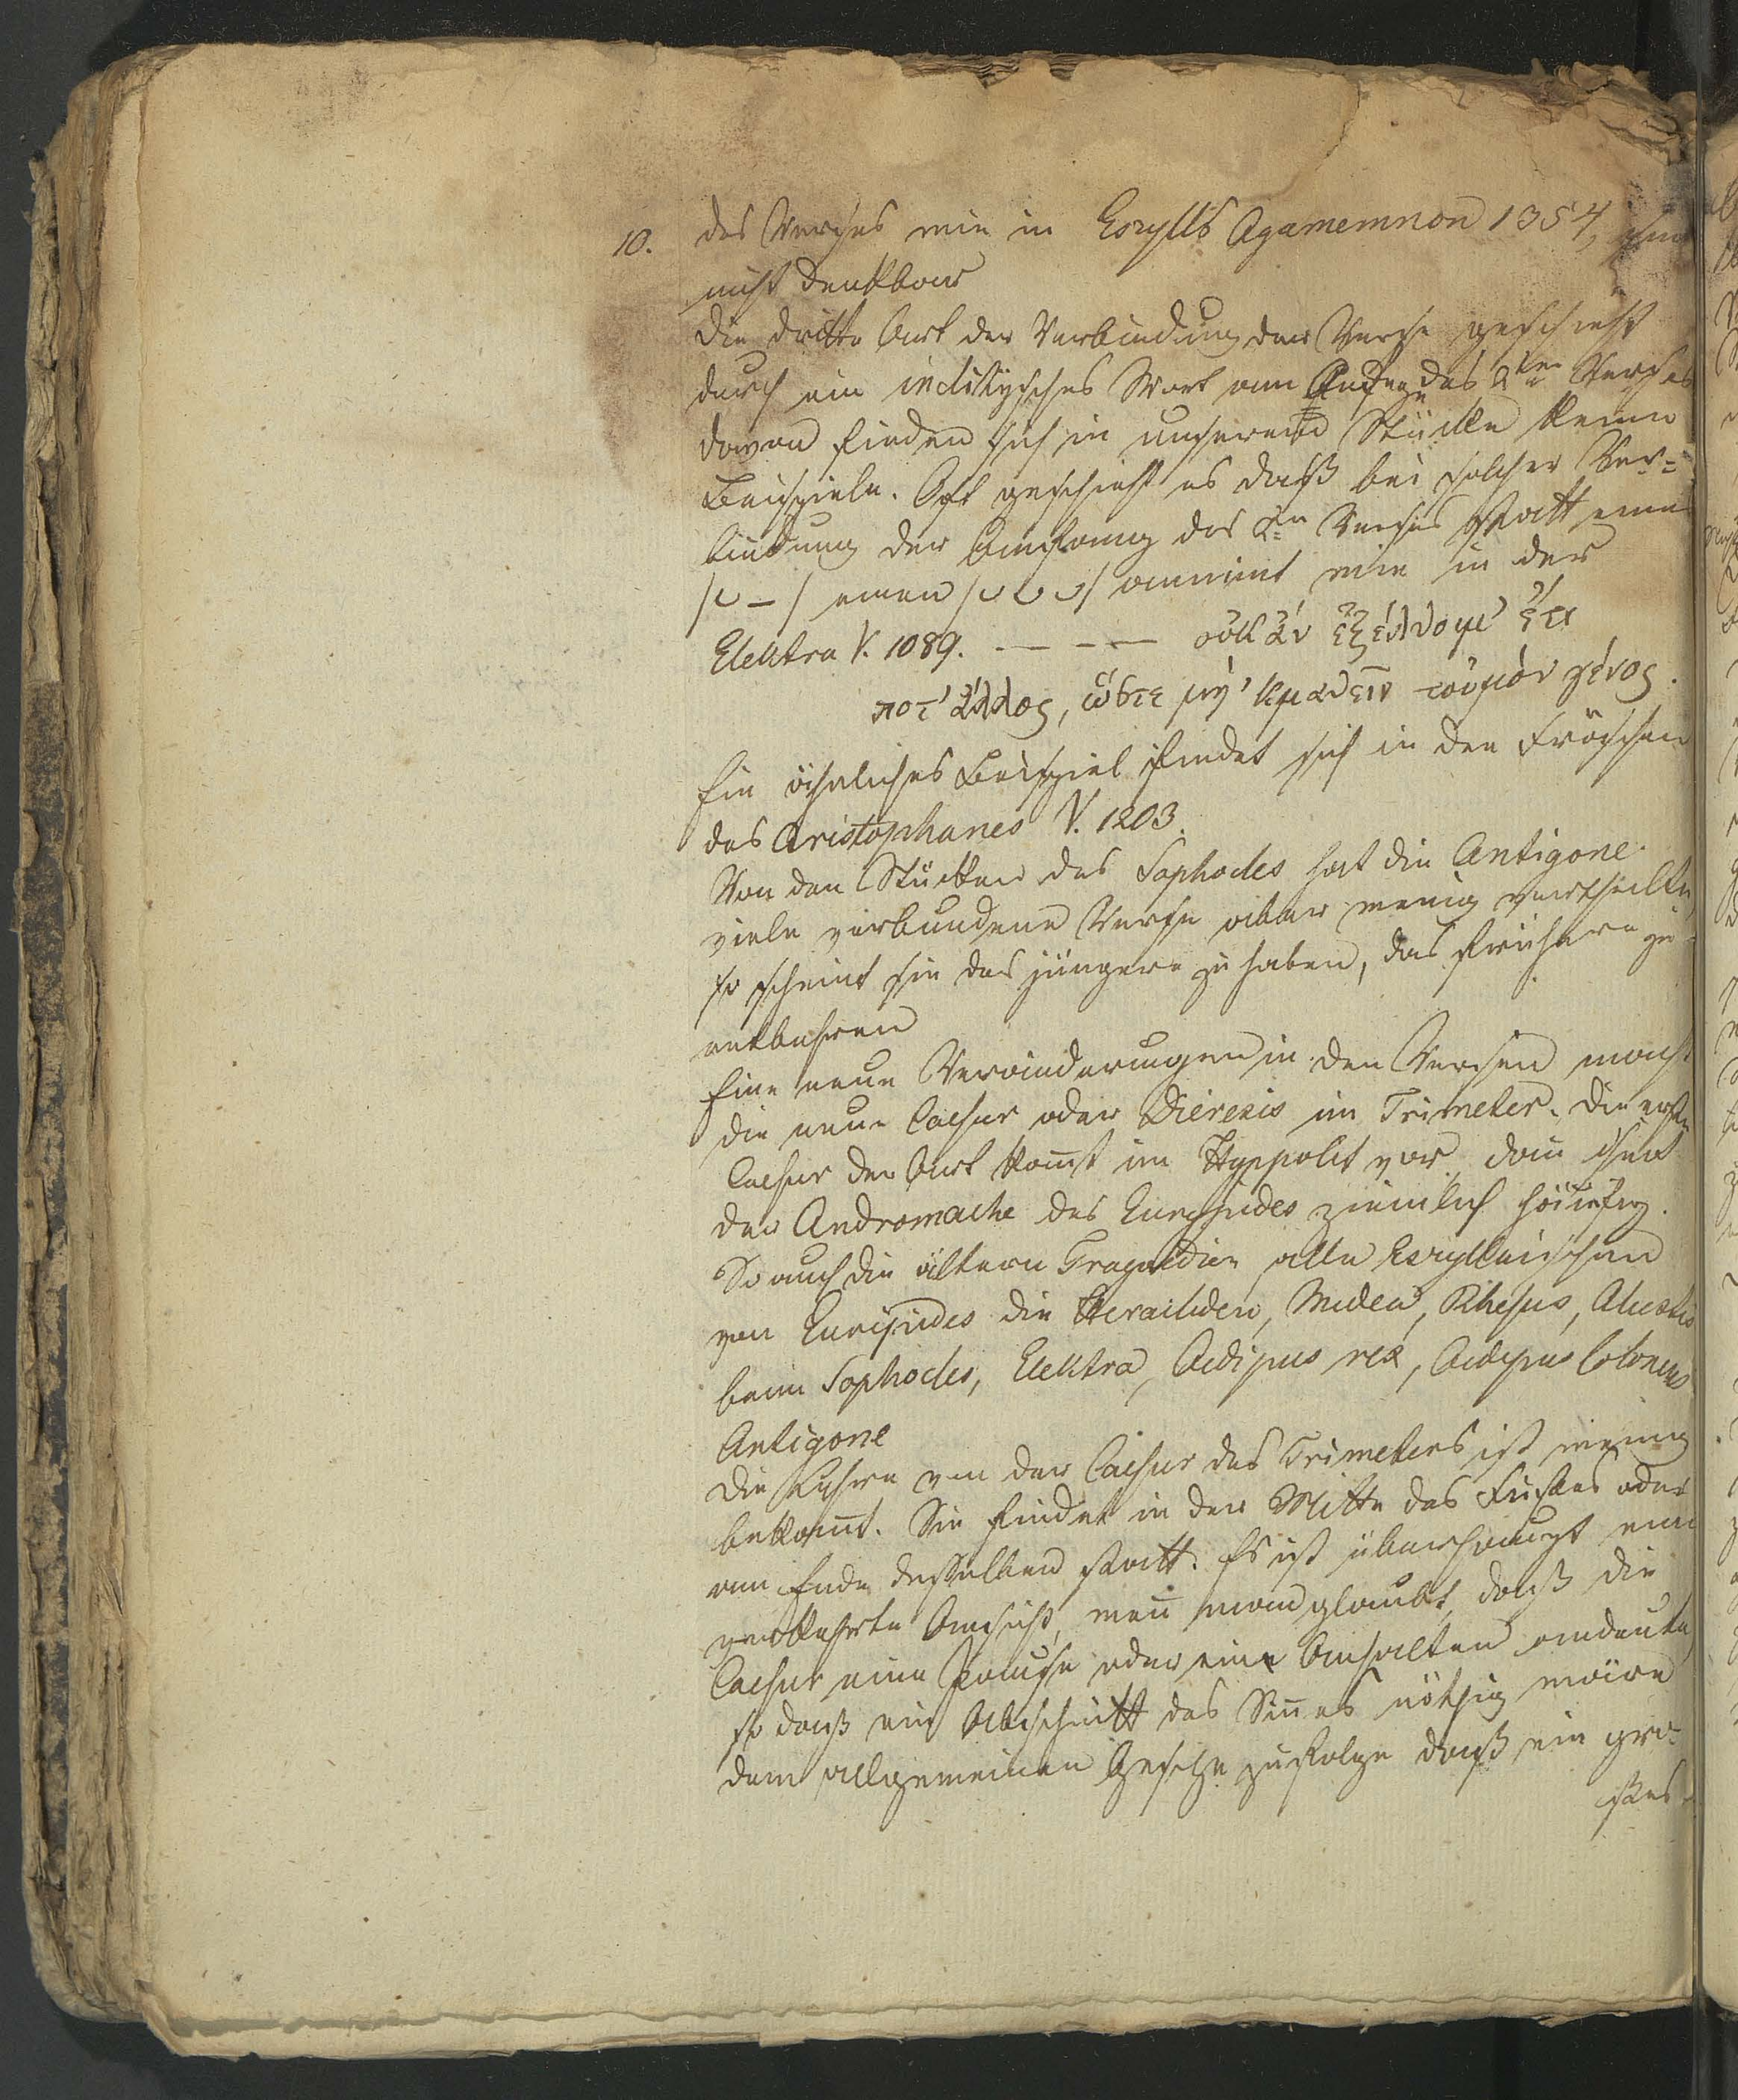 10. des Verses wie in Eschylls Agamemnon 1354,
nicht denkbar
Die dritte Art der Verbindung der Verse geschieht
durch ein inclitysches Wort am Anfange des 2ten Verses
davon finden sich in unserem Stücke keine
Beispiele. Oft geschieht es daß bei solcher Ver=
bindung der Anfang des 2ten Verses statt eine
/⏑ – / einen /⏑ ⏑ ⏑/ annimt wie in der
Elektra V. 1089. — – — οὐκ ἂν ἐξέλθοιμ' ἔτι
ποτ' ἄλλος, ὥστε μὴ 'κμαθεῖν τοὐμὸν γένος.
Ein ähnliches Beispiel findet sich in den Fröschen
des Aristophanes V. 1203.
Von den Stücken des Sophocles hat die Antigone
viele verbundene Verse aber wenig vertheilte,
so scheint sie das jüngere zu haben, das frühere zu
entbehren
Eine neue Veränderungen in den Versen macht
die neue Caesur oder Dieresis im Trimeter. Die erste
Caesur der Art komt im Hyppolit vor, dan
der Andromache des Euripides ziemlich häüfig.
So auch die ältern Tragoedien alle Eschylleischen
von Euripides die Heracliden, Medea, Rhesus, Alcestis
beim Sophocles, Elektra, Oedipus rex, Oedipus Coloneus
Antigone
Die Lehre von der Caesur des Trimeters ist wenig
bekannt. Sie findet in der Mitte des Fußes oder
am Ende desselben statt. Es ist überhaupt eine
verkehrte Ansicht, wenn man glaubt, daß die
Caesur eine Pause oder ein Anhalten andeute,
so daß ein Abschnitt des Sinnes nöthig wäre
dem allgemeinen Gesetze zufolge daß ein gro=
ßes